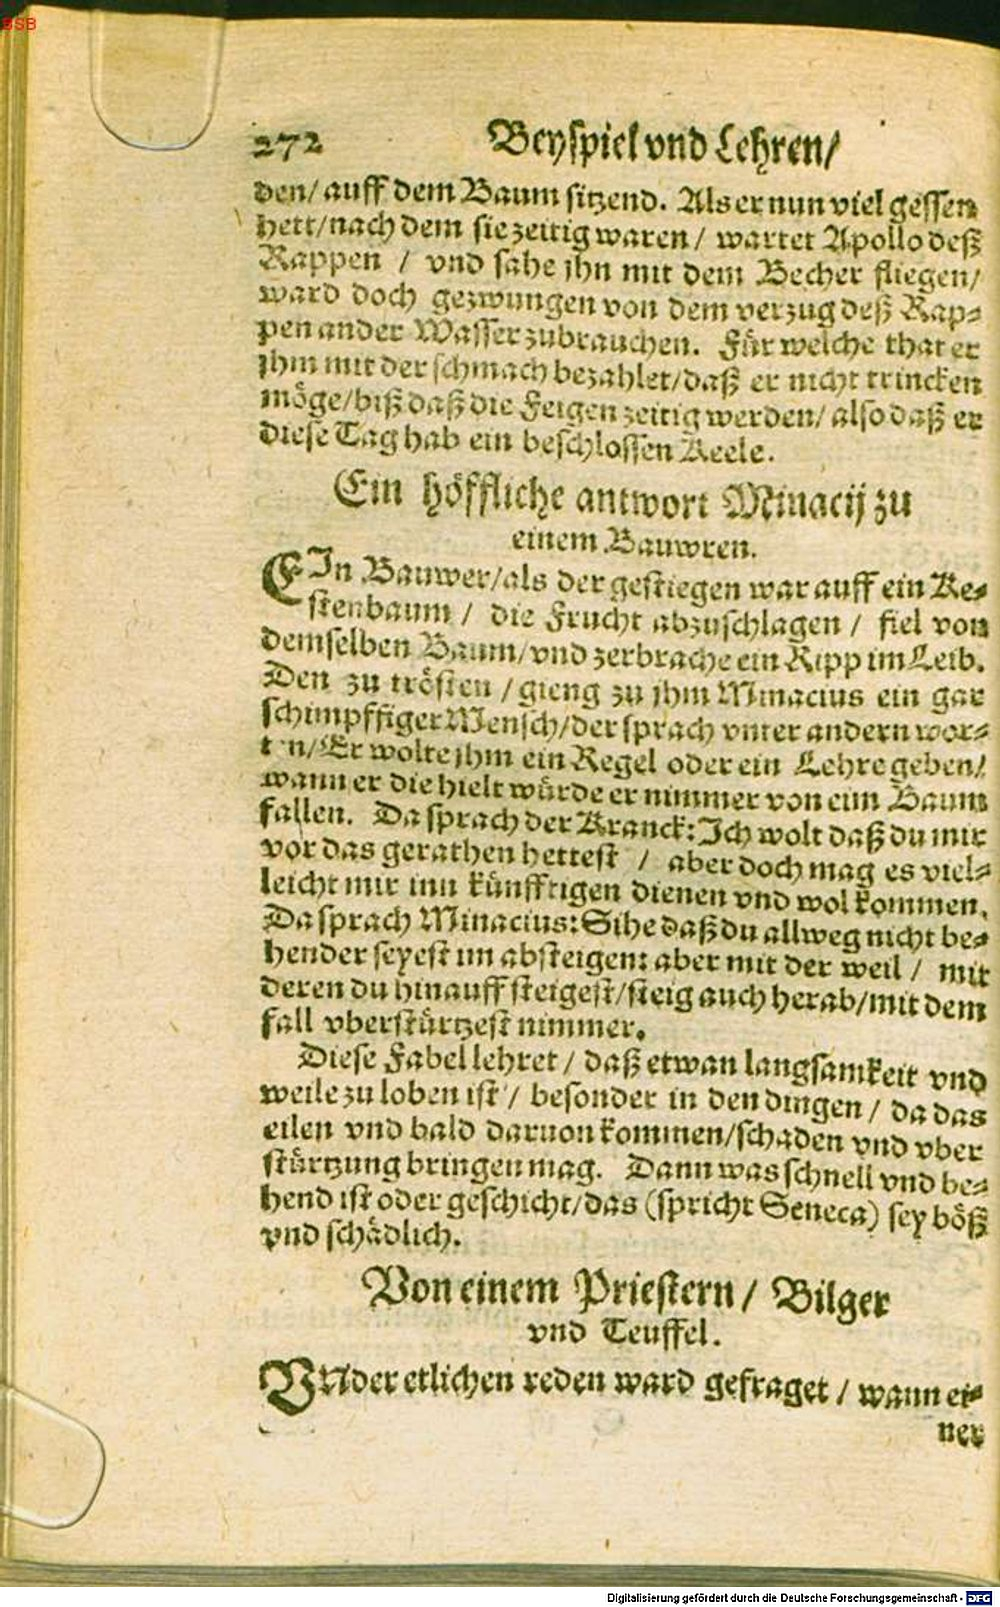 BSB
272 Beyspiel vnd Lehren/
den/ auff dem Baum sitzend. Als er nun viel gessen
hett/ nach dem sie zeitig waren/ wartet Apollo deß
Rappen / vnd sahe jhn mit dem Becher fliegen/
ward doch gezwungen von dem verzug deß Rap-
pen ander Wasser zubrauchen. Für welche that er
jhm mit der schmach bezahlet/ daß er nicht trincken
möge/ biß daß die Feigen zeitig werden/ also daß er
diese Tag hab ein beschlossen Keele.
Ein höffliche antwort Minacij zu
einem Bauwren.
EIn Bauwer/ als der gestiegen war auff ein Ke-
stenbaum / die Frucht abzuschlagen / fiel von
demselben Baum/ vnd zerbrache ein Ripp im Leib.
Den zu trösten / gieng zu jhm Minacius ein gar
schimpffiger Mensch/ der sprach vnter andern wor-
ten/ Er wolte jhm ein Regel oder ein Lehre geben/
wann er die hielt würde er nimmer von eim Baum
fallen. Da sprach der Kranck: Ich wolt daß du mir
vor das gerathen hettest / aber doch mag es viel-
leicht mir inn künfftigen dienen vnd wol kommen.
Da sprach Minacius: Sihe daß du allweg nicht be-
hender seyest im absteigen: aber mit der weil / mit
deren du hinauff steigest/ steig auch herab/ mit dem
fall vberstürtzest nimmer.
Diese Fabel lehret / daß etwan langsamkeit vnd
weile zu loben ist / besonder in den dingen / da das
eilen vnd bald daruon kommen/ schaden vnd vber
stürtzung bringen mag. Dann was schnell vnd be-
hend ist oder geschicht/ das (spricht Seneca) sey böß
vnd schädlich.
Von einem Priestern / Bilger
vnd Teuffel.
VNder etlichen reden ward gefraget / wann ei-
ner
Digitalisierung gefördert durch die Deutsche Forschungsgemeinschaft - DFG